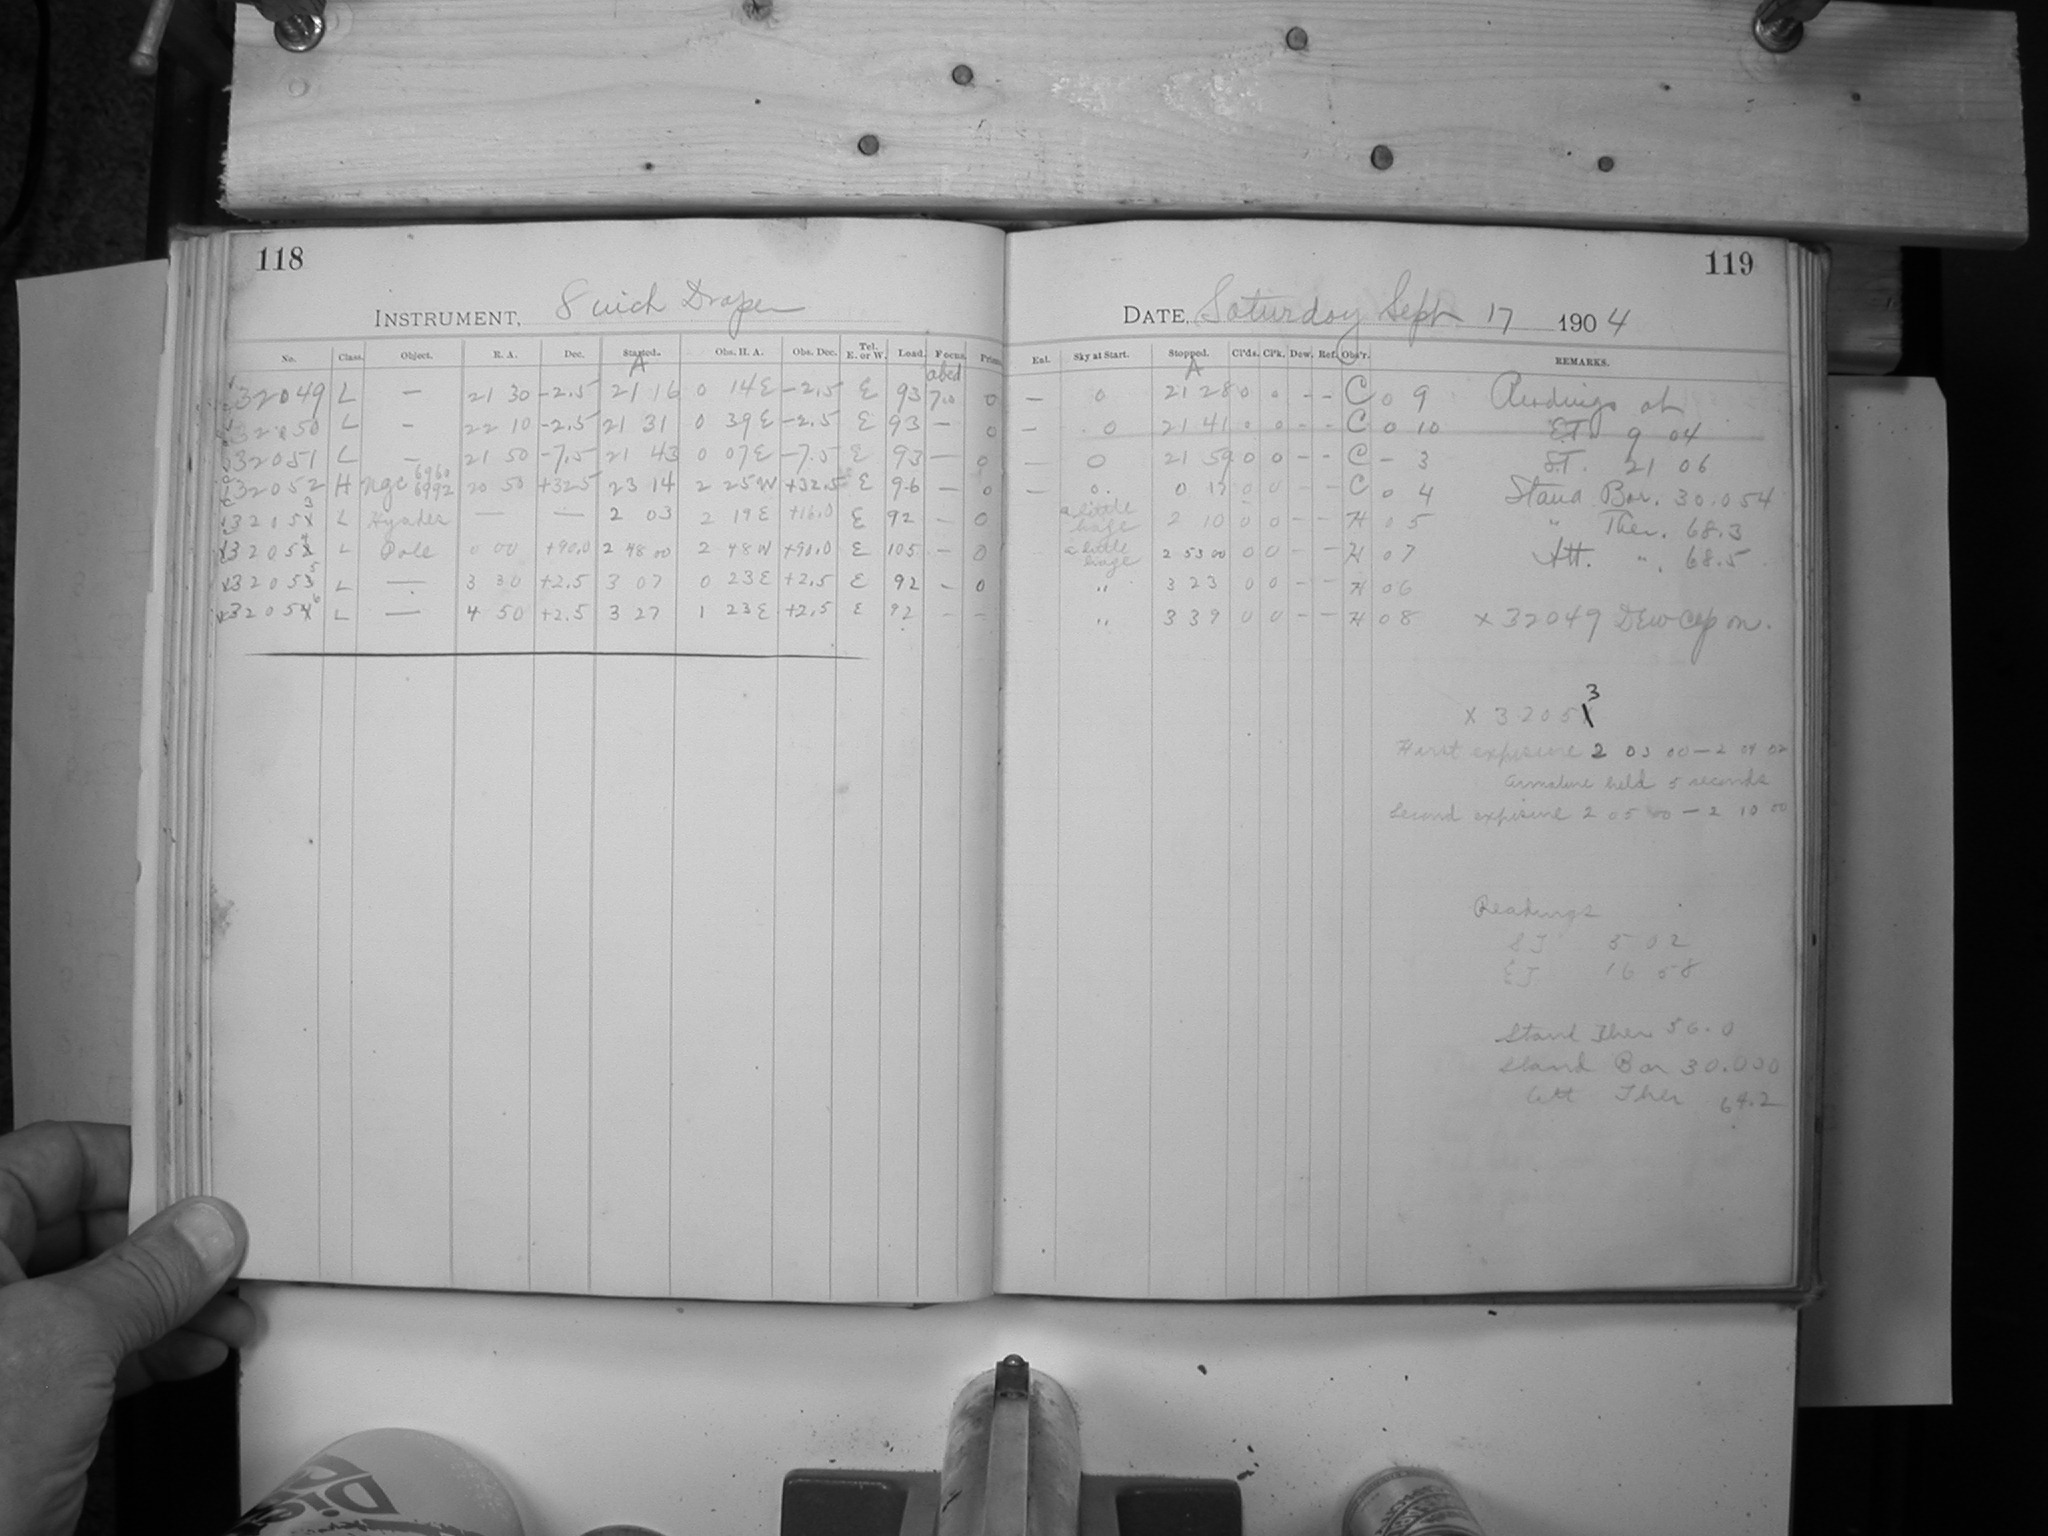 118
INSTRUMENT, 8 inch Draper
No. Class. Object. R. A. Dec. Started. Obs. H. A. Obs. Dec. Tel. E. or W. Load. Focus.
A abcd
32049 L — 21 30 -2.5 21 16 0 14E -2.5 E 93 7.0 0
32050 L - 22 10 -2.5 21 31 0 39E -2.5 E 93 — 0
32051 L — 21 50 -7.5 21 43 0 07E -7.5 E 93 — 0
32052 H ngc 6960 6992 20 50 +32.5 23 14 2 25W +32.5 E 96 — 0
3205 3 L Hyades — — 2 03 2 19E +16.0 E 92 - 0
3205 4 L Pole 0 00 +90.0 2 48 00 2 48W +90.0 E 105 - 0
3205 5 L — 3 30 +2.5 3 07 0 23E +2.5 E 92 - 0
3205 6 L — 4 50 +2.5 3 27 1 23E +2.5 E 92 - -
119
DATE, Saturday Sept 17 1904
Enl. Sky at Start. Stopped. Cl'ds. Cl'k. Dew. Ref. Obs'r. REMARKS.
A
— 0 21 28 0 0 - - C 0 9 Readings at
— 0 21 41 0 0 - - C 0 10 E.T. 9 04
— 0 21 59 0 0 - - C - 3 S.T. 21 06
— 0. 0 17 0 0 - - C 0 4 Stand Bar. 30.054
a little haze 2 10 0 0 - - H 0 5 " Ther. 68.3
a little haze 2 53 00 0 0 - - H 0 7 Att. " 68.5
" 3 23 0 0 - - H 0 6
" 3 39 0 0 - - H 0 8 x 32049 Dew cap on.
3
x 3205
First exposure 2 03 00 — 2 04 02
Armature held 5 seconds
Second exposure 2 05 00 — 2 10 00
Readings
S T 5 02
E T 16 58
Stand Ther 56.0
Stand Bar 30.030
Att Ther 64.2
Diet